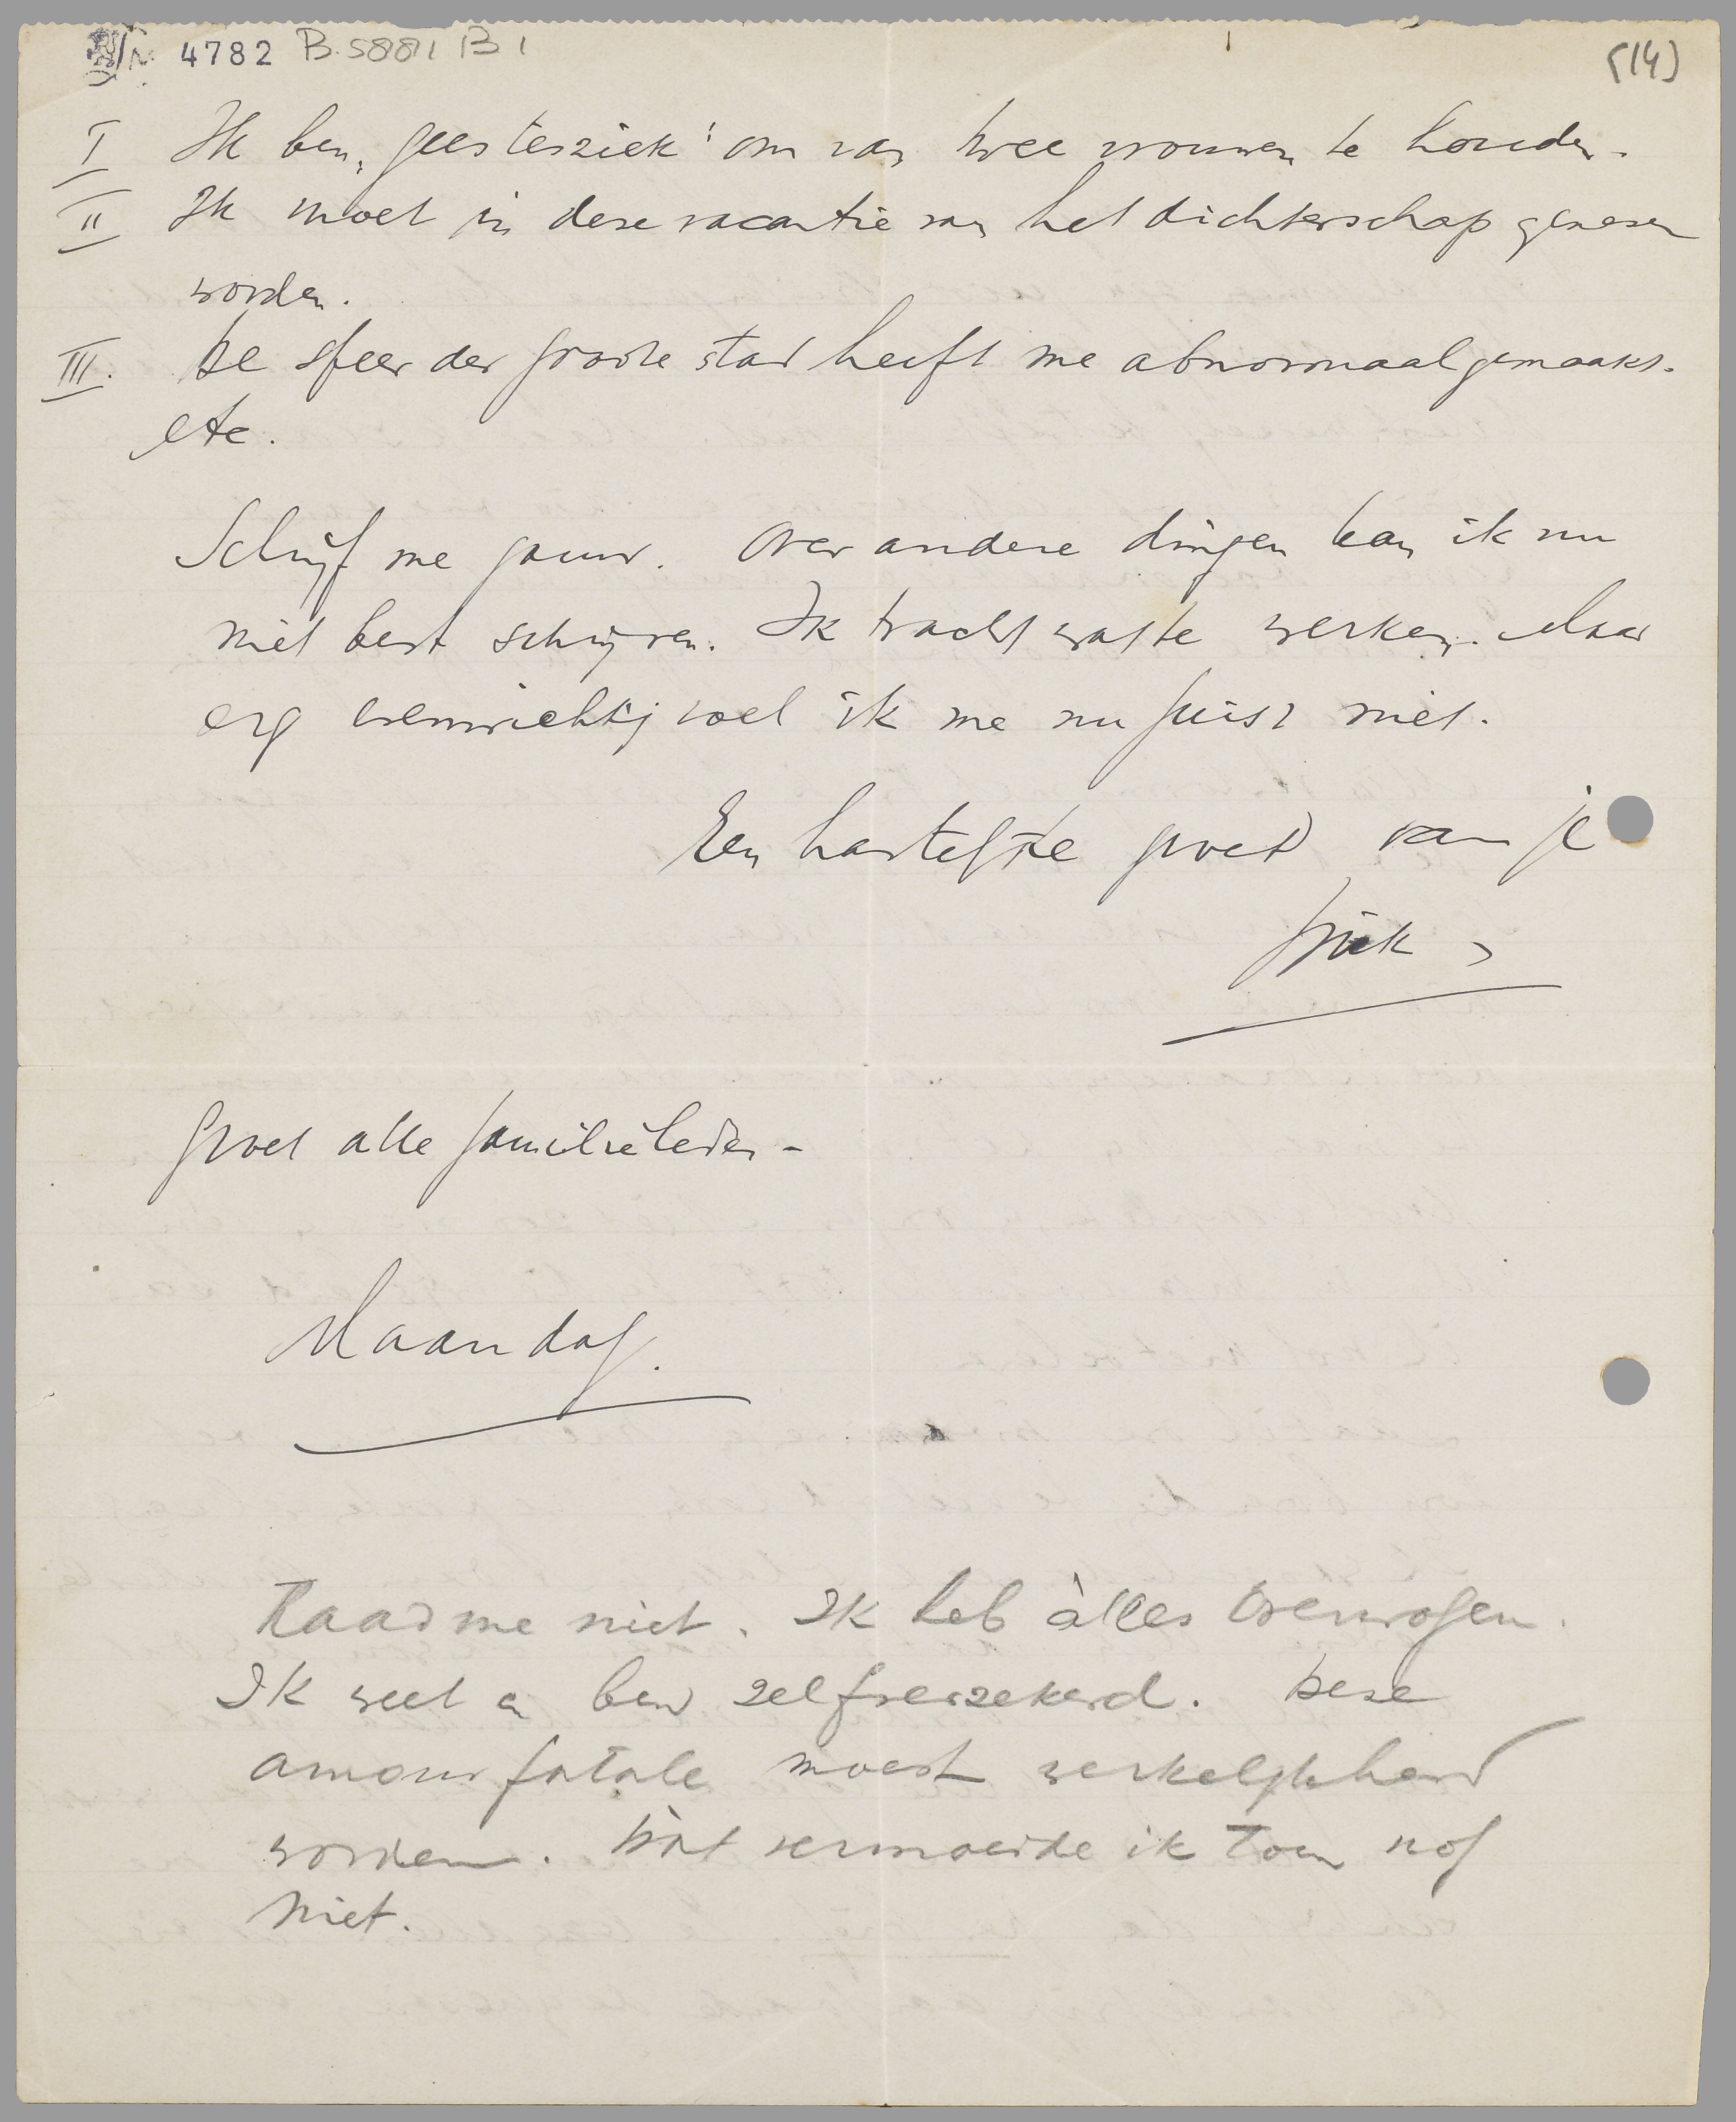 4782 B.5881 B1
(14)
I Ik ben „geestesziek" om van twee vrouwen te houden.
II Ik moet in deze vacantie van het dichterschap genezen
worden.
III. De sfeer der groote stad heeft me abnormaal gemaakt.
etc.
Schrijf me gauw. Over andere dingen kan ik nu
niet best schrijven. Ik tracht wat te werken. Maar
erg evenwichtig voel ik me nu juist niet.
Een hartelijke groet van je
Groet alle familieleden -
Maandag.
Raad me niet. Ik heb àlles overwogen.
Ik weet en ben zelfverzekerd. Deze
amour fatale moest werkelijkheid
worden. Dàt vermoedde ik toen nog
niet.